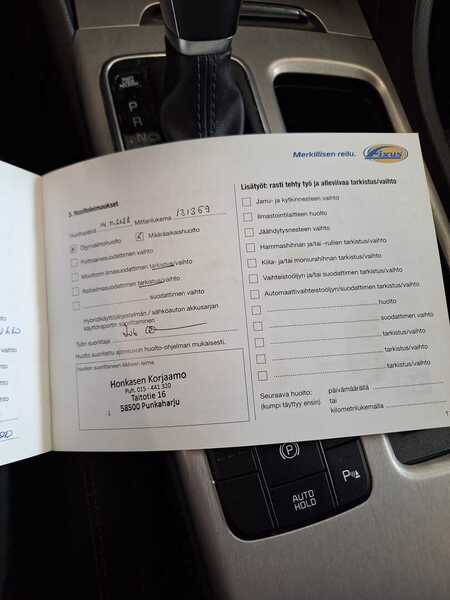 P
R
N
Merkillisen reilu.
Fixus
5. Huoltoleimaukset
Huoltopäivä Mittarilukema 131369
Öljynvaihtohuolto Määräaikaishuolto
Polttoainesuodattimen vaihto
Moottorin ilmansuodattimen tarkistus/vaihto
Raitisilmasuodattimen tarkistus/vaihto
suodattimen vaihto
Hybridikäyttöjärjestelmän / sähköauton akkusarjan
käyttöraportin suorittaminen
Työn suorittaja
Huolto suoritettu ajoneuvon huolto-ohjelman mukaisesti.
Huollon suorittaneen liikkeen leima:
Honkasen Korjaamo
Puh. 015 - 441 320
Taitotie 16
58500 Punkaharju
Lisätyöt: rasti tehty työ ja alleviivaa tarkistus/vaihto
Jarru- ja kytkinnesteen vaihto
Ilmastointilaitteen huolto
Jäähdytysnesteen vaihto
Hammashihnan ja/tai -rullien tarkistus/vaihto
Kiila- ja/tai moniurahihnan tarkistus/vaihto
Vaihteistoöljyn ja/tai suodattimen tarkistus/vaihto
Automaattivaihteistoöljyn/suodattimen tarkistus/vaihto
huolto
suodattimen vaihto
tarkistus/vaihto
tarkistus/vaihto
tarkistus/vaihto
Seuraava huolto: päivämäärällä
(kumpi täyttyy ensin) tai
kilometrilukemalla
vaihto
vaihto
P
AUTO
HOLD
P